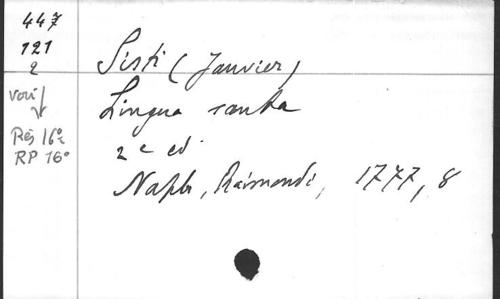 447
121
2
voir
Rés 16°
RP 16°
Sisti (Janvier)
Lingua santa
2e ed
Naples, Raimondi, 1777, 8